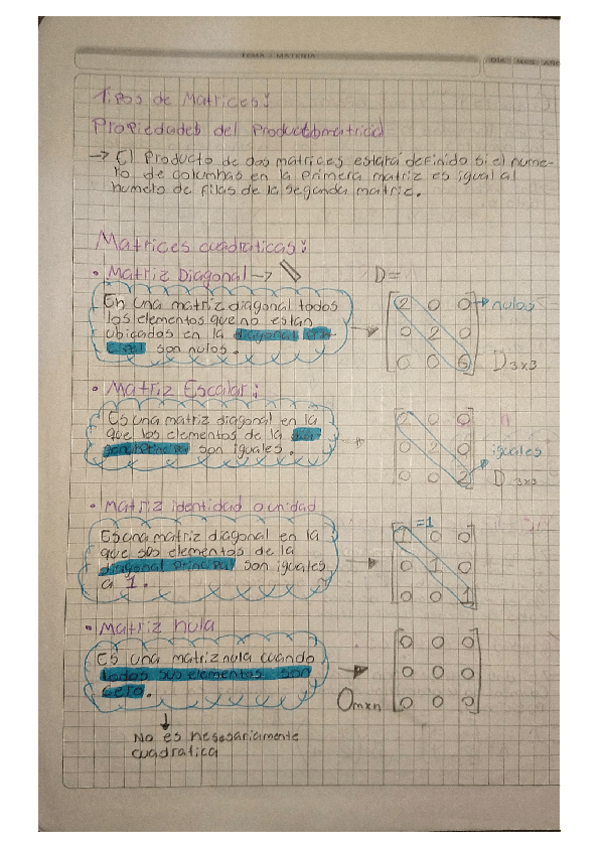 TEMA / MATERIA
DIA MES AÑO
Tipos de Matrices:
Propiedades del Producto matricial
→ El Producto de dos matrices estará definido si el nume-
ro de columnas en la Primera matriz es igual al
numero de filas de la segunda matriz.
Matrices cuadraticas:
• Matriz Diagonal →
D=
En una matriz diagonal todos
los elementos que no estan
ubicados en la diagonal prin
cipal son nulos.
2 0 0 → nulos
0 2 0
0 0 6 D 3x3
• Matriz Escalar:
Es una matriz diagonal en la
que los elementos de la dia
gonal principal son iguales.
2 0 0
0 2 0 iguales
0 0 2 D 3x3
• Matriz identidad o unidad
Es una matriz diagonal en la
que sus elementos de la
diagonal principal son iguales
a 1.
=1
1 0 0
0 1 0
0 0 1
• Matriz nula
Es una matriz nula cuando
todos sus elementos son
cero.
0 0 0
0 0 0
0mxn 0 0 0
No es nesesariamente
cuadratica